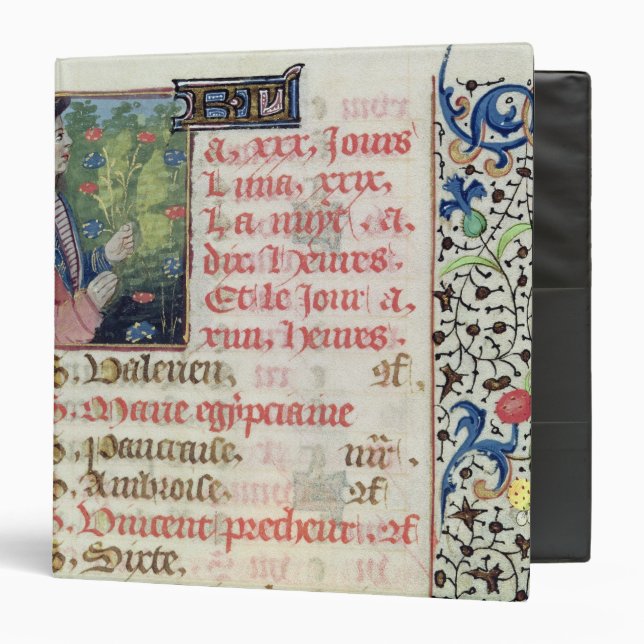 a, xxx, Jours
Luna, xxix,
La nuyt. a.
dix, heures.
Et le Jour a,
xiiii, heures.
S. Valerien,
S. Marie egypciaine
S. Pancraise,
S. Ambroise,
S. Vincent precheur,
S. Sixte,